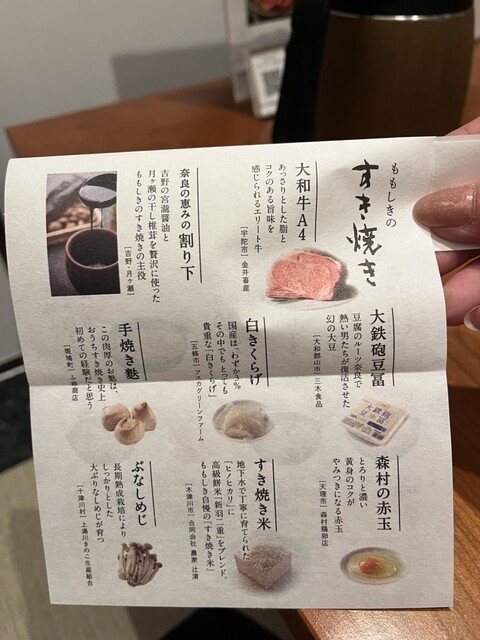 ももしきの
すき焼き
大和牛A4
あっさりとした脂と
コクのある旨味を
感じられるエリート牛
［宇陀市］金井畜産
奈良の恵みの割り下
吉野の宮瀧醤油と
月ヶ瀬の干し椎茸を贅沢に使った
ももしきのすき焼きの主役
［吉野・月ヶ瀬］
大鉄砲豆富
豆腐のルーツ奈良で
熱い男たちが復活させた
幻の大豆
［大和郡山市］三木食品
白きくらげ
国産は、わずか3%
その中でもとっても
貴重な「白きくらげ」
［五條市］アスカグリーンファーム
手焼き麩
この肉厚のお麩は、
おうちすき焼き史上
初めての経験だと思う
森村の赤玉
とろりと濃い
黄身のコクが
やみつきになる赤玉
［天理市］森村鶏卵店
すき焼き米
地下水で丁寧に育てられた
「ヒノヒカリ」に
高級餅米「新羽二重」をブレンド。
ももしき自慢の「すき焼き米」
［木津川市］合同会社 農家 辻演
ぶなしめじ
長期熟成栽培により
しっかりとした
大ぶりなしめじが育つ
［十津川村］上湯川きのこ生産組合